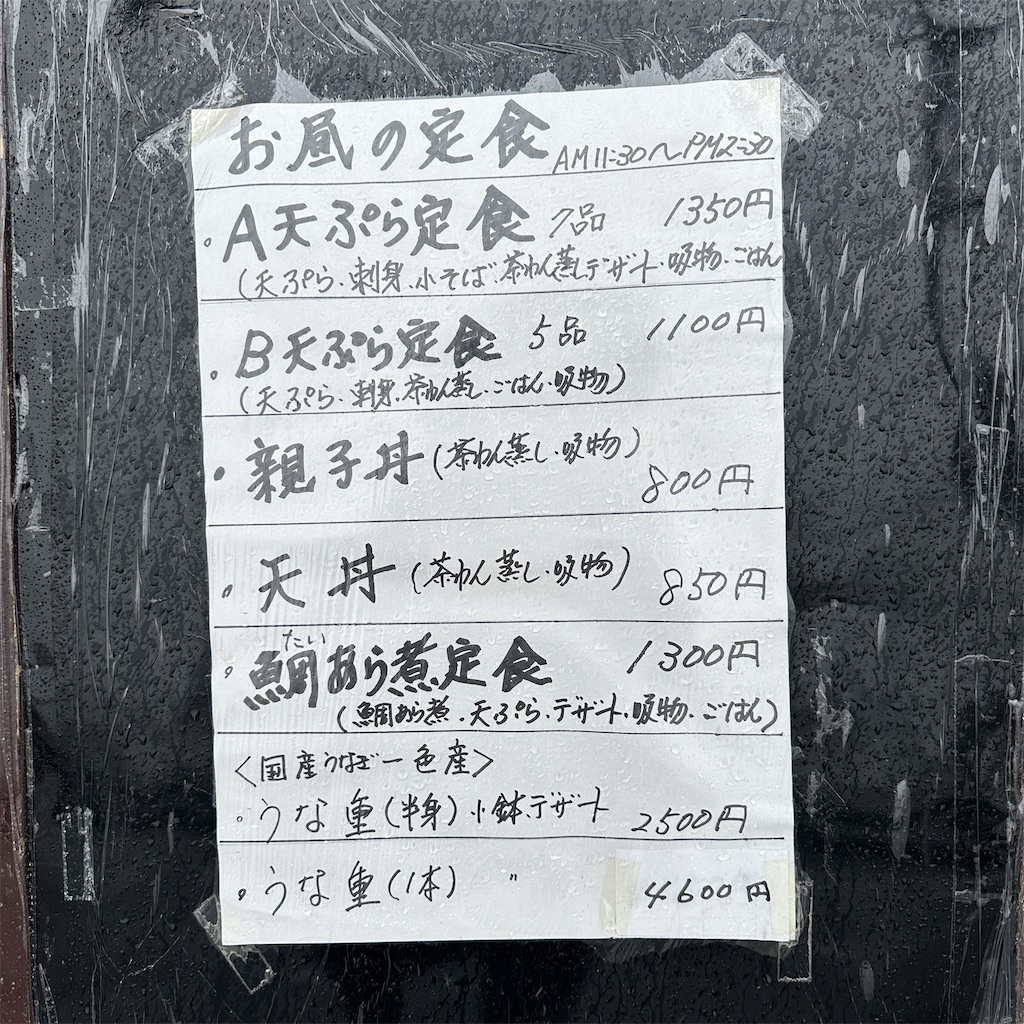 お昼の定食 AM11:30〜PM2:30
・A天ぷら定食 7品 1350円
(天ぷら、刺身、小そば、茶わん蒸し、デザート、吸物、ごはん
・B天ぷら定食 5品 1100円
(天ぷら、刺身、茶わん蒸し、ごはん、吸物)
・親子丼(茶わん蒸し、吸物) 800円
・天丼(茶わん蒸し、吸物) 850円
たい
・鯛あら煮定食 1300円
(鯛あら煮、天ぷら、デザート、吸物、ごはん)
<国産うなぎ一色産>
・うな重(半身)小鉢、デザート 2500円
・うな重(1本) 〃 4600円